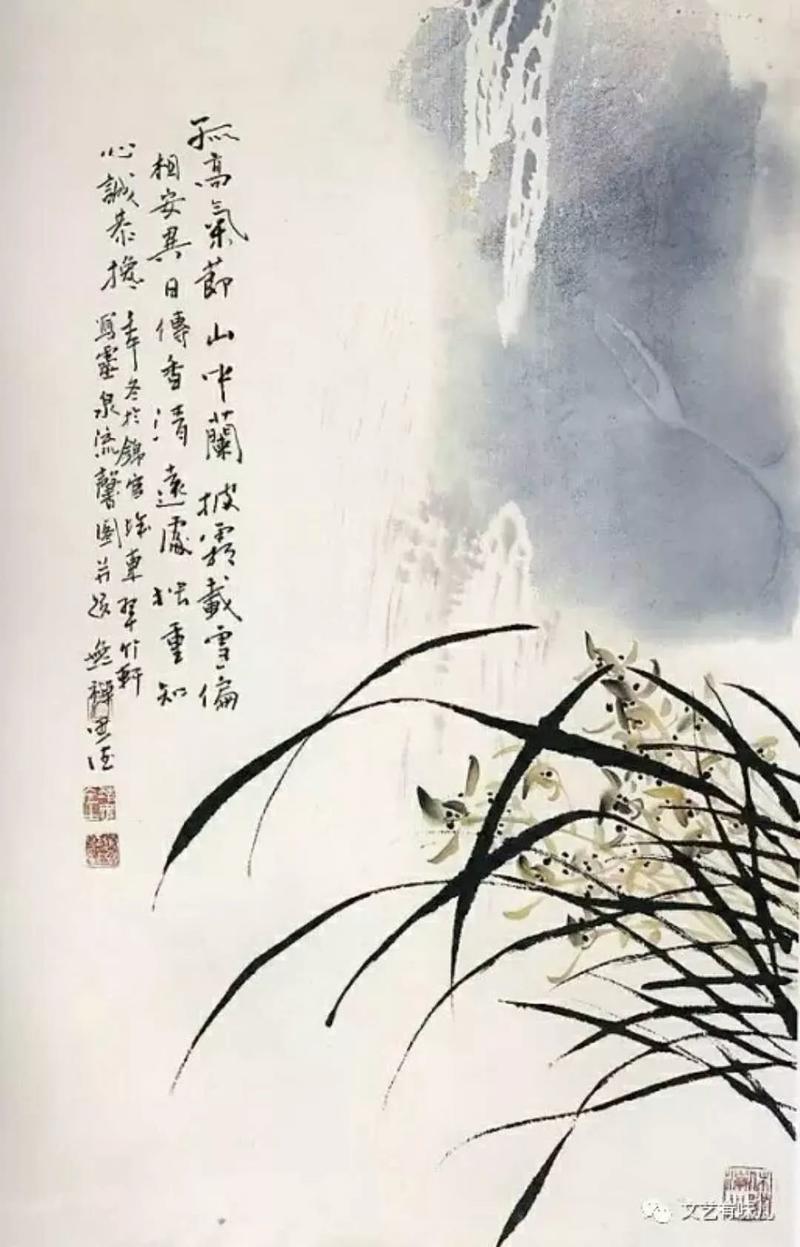 孤高氣節山中蘭披霜載雪偏
相安異日傳香清遠處 重知
心誠
冬於錦官城東翠竹軒
寫靈泉流馨圖并 無禪
文艺有味儿